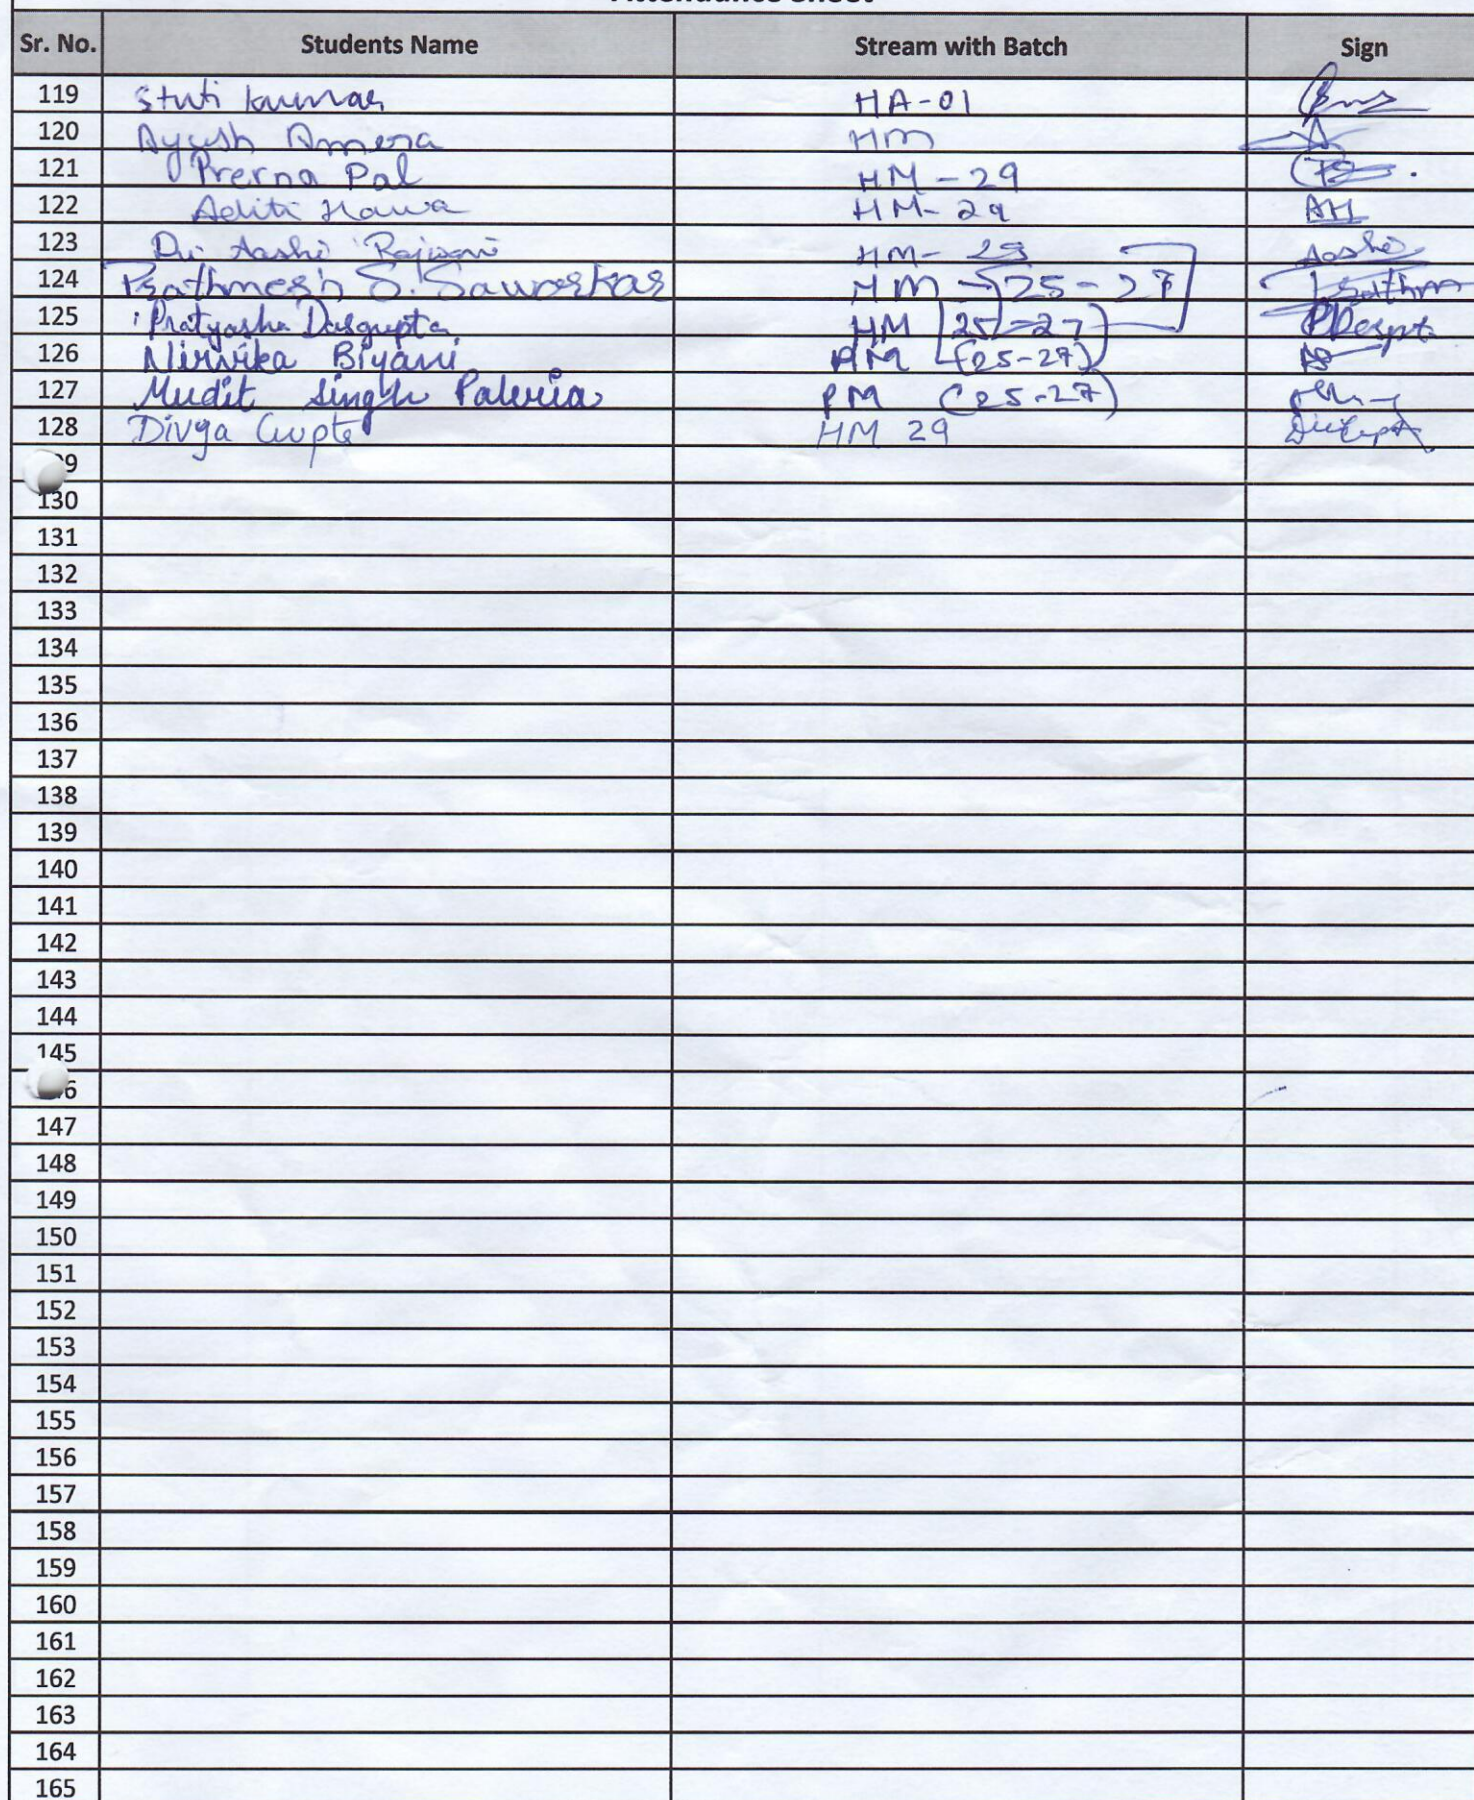 Attendance Sheet
Sr. No. Students Name Stream with Batch Sign
119 Stuti Kumar HA-01
120 Ayush Amera HM A
121 Prerna Pal HM-29
122 Aditi Hawa HM-29 AH
123 Dr. Aashi Rajwani HM-29 Aashi
124 Prathmesh S. Sawarkar HM - [25-27] Prathm
125 Pratyasha Dasgupta HM [25-27]
126 Nirvika Biyani HM (25-27)
127 Mudit Singh Paleria PM (25-27)
128 Divya Gupta HM 29
9
130
131
132
133
134
135
136
137
138
139
140
141
142
143
144
145
6
147
148
149
150
151
152
153
154
155
156
157
158
159
160
161
162
163
164
165